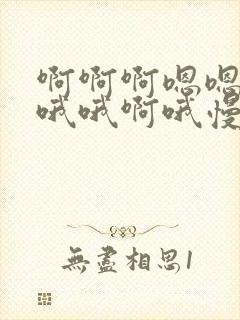 啊啊啊嗯嗯
哦哦啊哦慢
無盡相思1